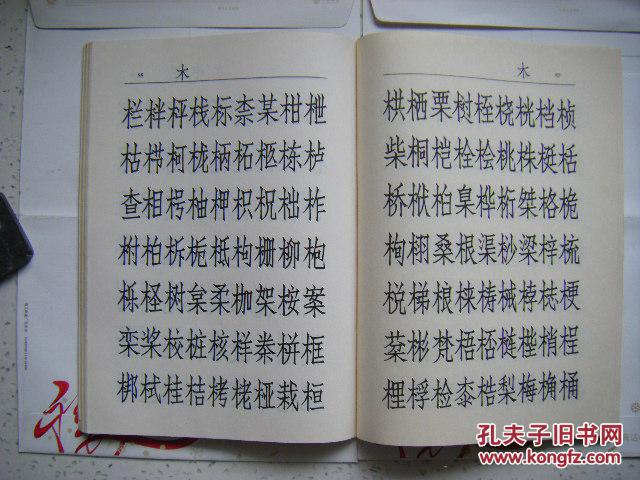 木
栏柈枰栈标柰某柑枻
枯栉柯栊柄柘柩栋栌
查相枵柚枷枳柷柮柞
柎柏柝栀柢栒栅柳枹
栎柽树柒柔枷架桉案
栾桨校桩核样桊栟框
梆栻桂桔栲栳桠栽桓
木
栱栖栗树桎桡桄档桢
柴桐桤栓桧桃株梃栝
桥栿桕臬桦桁桀格桅
栒栩桑根渠桫梁梓梳
棁梯根梾梼械梓梽梗
棻彬梵梧桰梿梩梢桯
梩桴检桼梏梨梅桷桶
孔夫子旧书网
www.kongfz.com